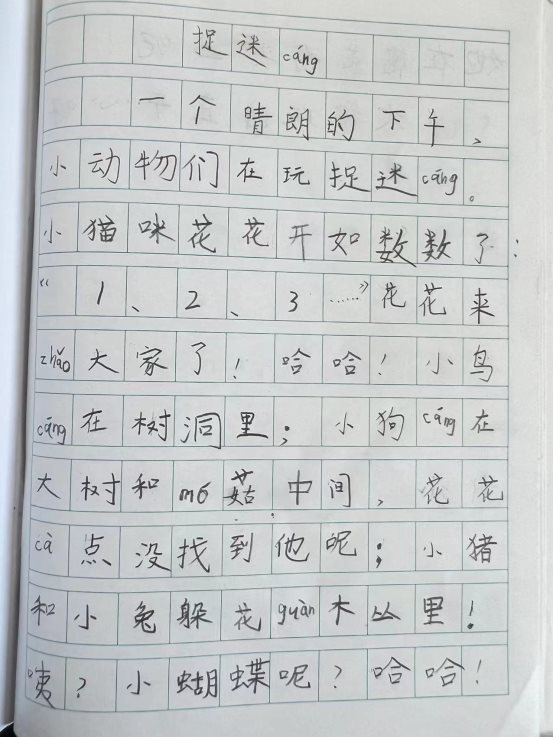 捉迷cáng
一个晴朗的下午、
小动物们在玩捉迷cáng。
小猫咪花花开如数数了：
“1、2、3……”花花来
zhǎo大家了！哈哈！小鸟
cáng在树洞里；小狗cáng在
大树和mó菇中间，花花
cà点没找到他呢；小猪
和小兔躲花guàn木丛里！
咦？小蝴蝶呢？哈哈！